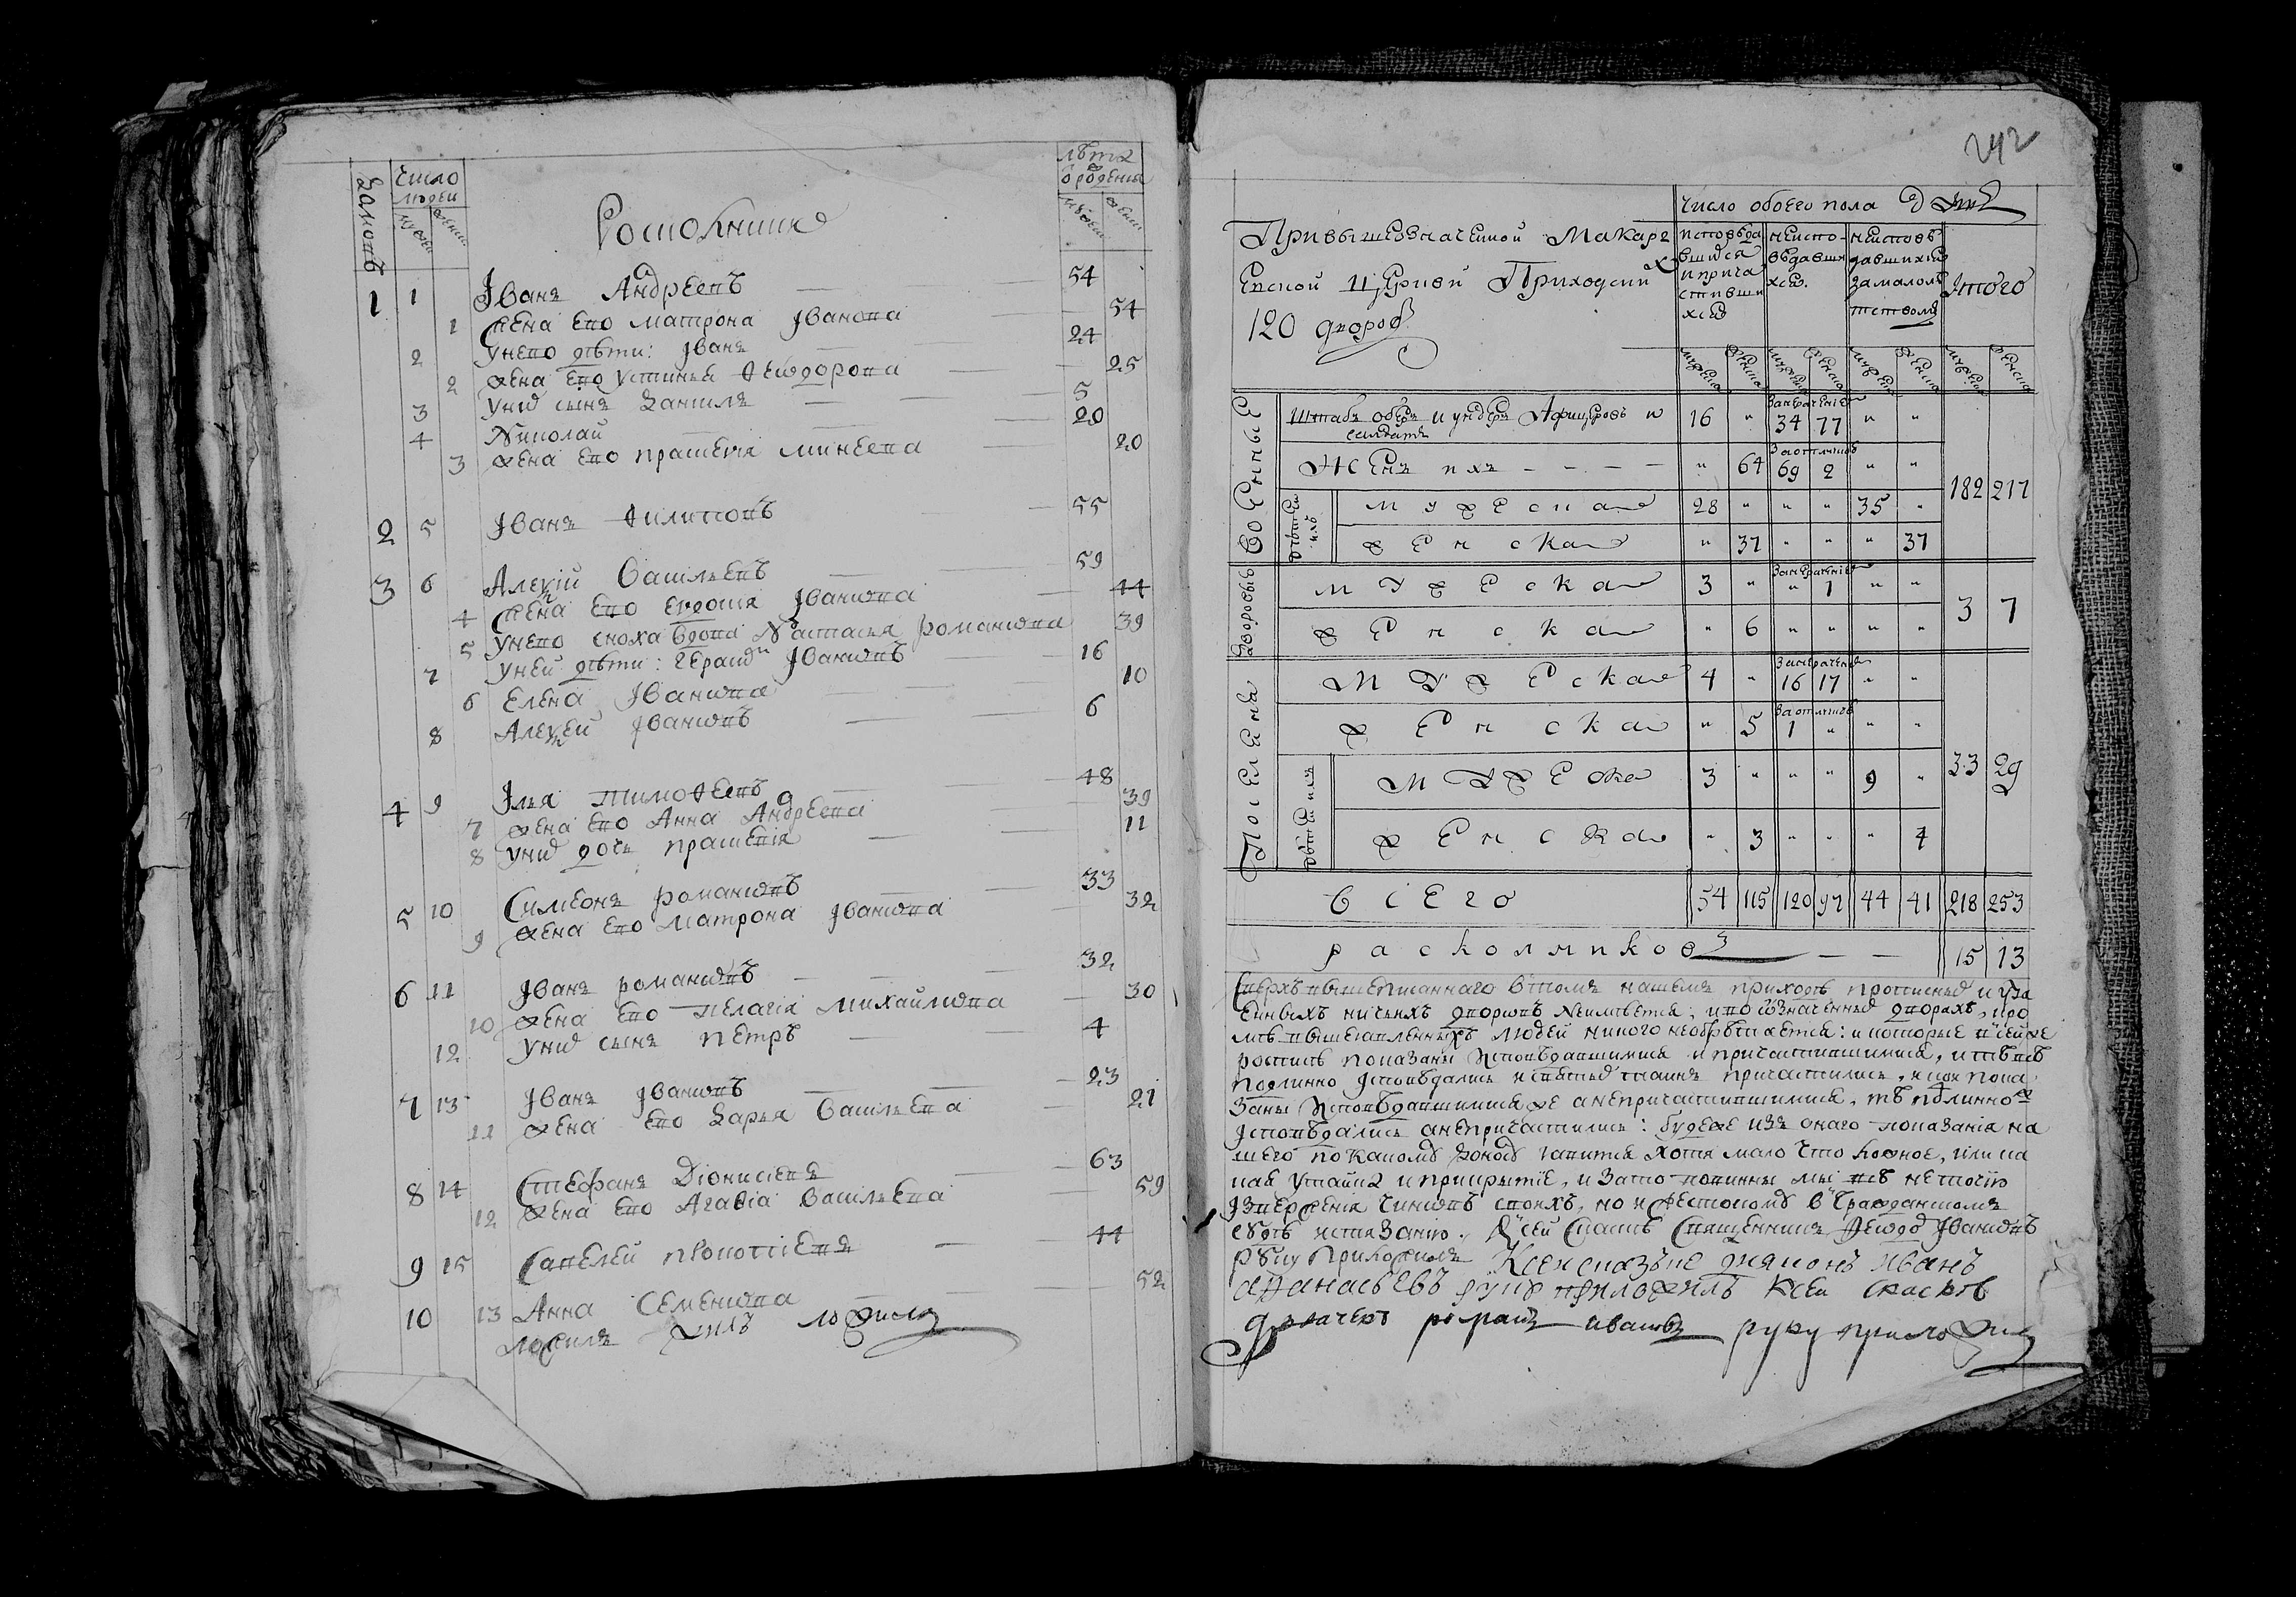 домовъ
Число людей
мужеск
женск
Роскольники
лѣта ѿ рожденія
мужеск
женск
1 1 Іванъ Андреевъ 54
1 Жена его Матрона Іванова 54
2 у него дѣти: Іванъ 24
2 жена его Устинья Ѳеѡдорова 25
3 у них сынъ Данилъ 5
4 Николай 20
3 жена его Прасковія Минеева 20
2 5 Іванъ Филиповъ 55
3 6 Алеѯій Васильевъ 59
4 Жена его Евдокія Іванѡва 44
5 у него сноха вдова Настасья Романѡва 39
7 у ней дѣти: Герасим Іванѡвъ 16
6 Елена Іванѡва 10
8 Алеѯей Іванѡвъ 6
4 9 Ілья Тимоѳеевъ 48
7 жена его Анна Андреева 39
8 у них дочь Прасковія 11
5 10 Симеонъ Романѡвъ 33
9 жена его Матрона Іванѡва 32
6 11 Іванъ Романѡвъ 32
10 жена его Пелагія Михайлѡва 30
12 у них сынъ Петръ 4
7 13 Іванъ Іванѡвъ 23
11 жена его Дарья Васильева 21
8 14 Стефанъ Діонисіевъ 63
12 жена его Агафіа Васильева 59
9 15 Савелей Прокопіевъ 44
10 13 Анна Семенѡва 52
ложилъ жилъ ложилъ
242
Число обоего пола
При вышеозначенной Макарьевской церкви Приходских
120 дворов
исповѣдавшихся и причастившихся
неисповѣдавшихся
неисповѣдавшихся за малолѣтством
Ітого
мужеска женска мужеска женска мужеска женска мужеска женска
Военные
Штабъ обер и ундеръ Афицеровъ и солдатъ 16 " за нерачениемъ 34 77 " "
Женъ ихъ - - - - " 64 за отлучкою 69 2 " "
дѣтей ихъ
мужеска 28 " " " 35 "
женска " 37 " " " 37
182 217
Дворовые
мужеска 3 " за нерачениемъ " 1 " "
женска " 6 " " " "
3 7
Поселеня
мужеска 4 " за нерачениемъ 16 17 " "
женска " 5 за отлучкою 1 " " "
дѣтей ихъ
мужеска 3 " " " 9 "
женска " 3 " " " 4
33 29
Всего 54 115 120 97 44 41 218 253
раскольниковъ — — 15 13
Сверхъ вышеписаннаго в томъ нашемъ приходѣ прописных и ута
енныхъ ничьихъ дворѡвъ не имѣется; и во ѡзначенных дворахъ, кро
мѣ вышеявленныхъ людей никого не обрѣтается: и которые в сей же
росписи показаны исповѣдавшимися и причастившимися, и тѣ всѣ
подлинно исповѣдались и святых таинъ причастились, а кои пока
заны исповѣдавшимися же а не причастившимися, тѣ подлинно ж
исповѣдались а не причастились: буде же изъ онаго показанія на
шего по какому доносу явится хотя мало что ложное, или ка
кая утайка и прикрытіе, и за то повинны мы всѣ не точію
изверженія чинѡвъ своихъ, но и жестокому в гражданскомъ
судѣ истязанію. К сей сказкѣ Священникъ Ѳеѡдор Іванѡвъ
руку приложилъ К сеи сказъке диаконъ Иванъ
аѳанасьевъ руку приложилъ К сеи сказкѣ
дьячекъ романъ ивановъ руку приложилъ